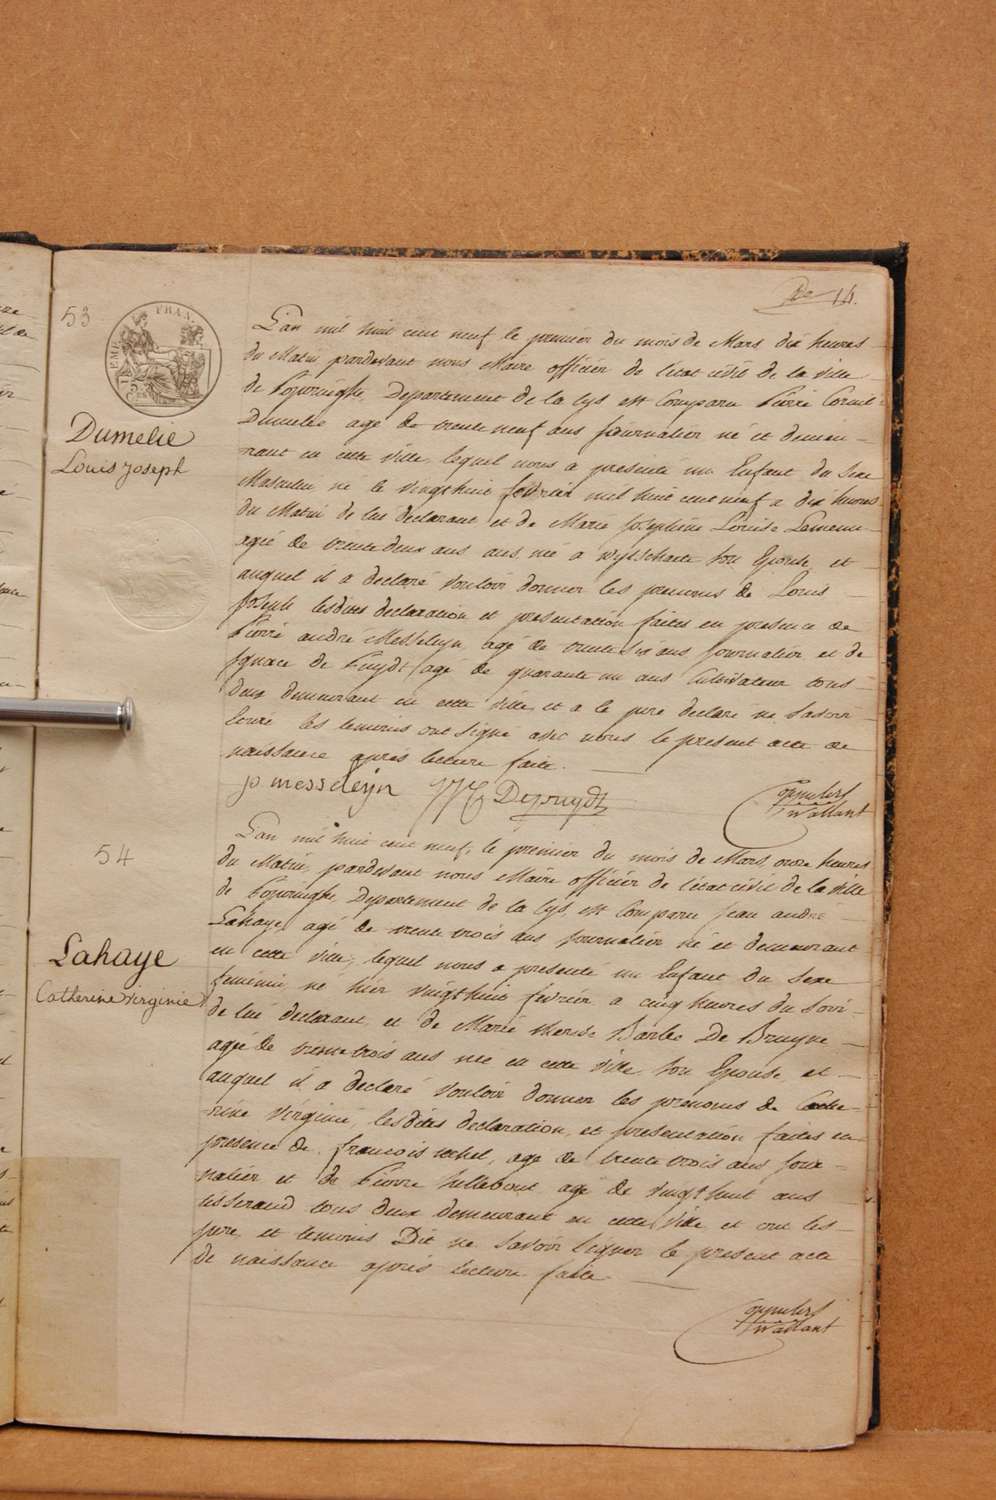 14.
53
EMP. FRAN.
Dumelie
Louis Joseph
L'an mil huit cent neuf le premier du mois de Mars dix heures
du Matin pardevant nous Maire officier de l'état civil de la ville
de Poperinghe, Departement de la Lys est Comparu Pierre Corneil
Dumelie agé de trente neuf ans journalier né et demeu-
rant en cette ville, lequel nous a presenté un Enfant du Sexe
Masculin né le vingthuit fevrier mil huit cent neuf a dix heures
du Matin de lui declarant et de Marie Josephine Louise
agée de trente deux ans ans née a wytschaete son Epouse, et
auquel il a declaré vouloir donner les prenoms de Louis
Joseph lesdites declaration et presentation faites en presence de
Pierre andré Messeleyn agé de trente six ans journalier et de
Ignace de Puydt agé de quarante un ans Cultivateur tous
deux demeurant en cette ville, et a le pere declaré ne savoir
Ecrire les temoins ont signé avec nous le present acte de
naissance après lecture faite.
p messeleyn De puydt
54
Lahaye
Catherine Virginie
L'an mil huit cent neuf, le premier du mois de Mars, onze heures
du Matin, pardevant nous Maire officier de l'état civil de la ville
de Poperinghe Departement de la Lys, est Comparu Jean andré
Lahaye agé de trente trois ans journalier né et demeurant
en cette ville, lequel nous a presenté un Enfant du Sexe
feminin, né hier vingthuit fevrier a cinq heures du Soir
de lui declarant, et de Marie therese Barbe De Bruyne
agée de trente trois ans née en cette ville son Epouse et
auquel il a declaré vouloir donner les prenoms de Cathe-
rine virginie, lesdites declaration, et presentation faites en
presence de francois agé de trente trois ans jour-
nalier et de Pierre hillebout agé de vingthuit ans
tisserand tous deux demeurant en cette ville et ont les
pere et temoins Dit ne savoir signer le present acte
de naissance après lecture faite.